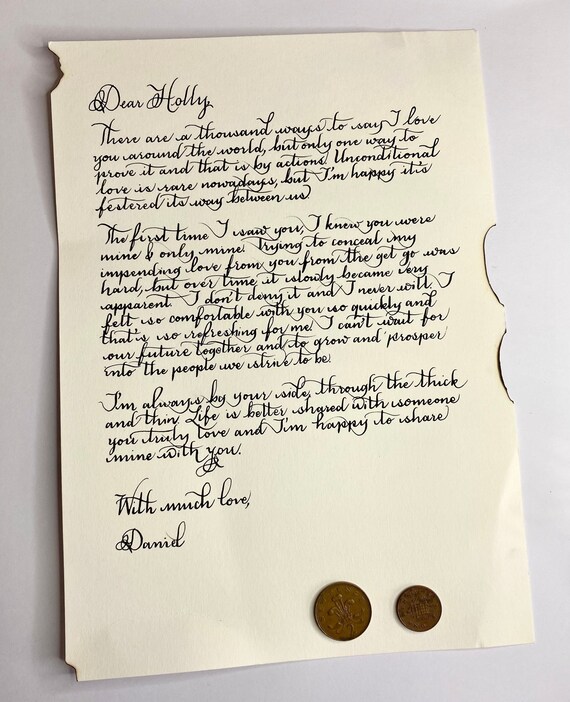 Dear Holly,
There are a thousand ways to say I love
you around the world, but only one way to
prove it and that is by actions. Unconditional
love is rare nowadays, but I'm happy it's
festered its way between us.
The first time I saw you, I knew you were
mine & only mine. Trying to conceal my
impending love from you from the get go was
hard, but over time it slowly became very
apparent. I don't deny it and I never will. I
felt so comfortable with you so quickly and
that's so refreshing for me. I can't wait for
our future together and to grow and prosper
into the people we strive to be.
I'm always by your side, through the thick
and thin. Life is better shared with someone
you truly love and I'm happy to share
mine with you.
With much love,
Daniel